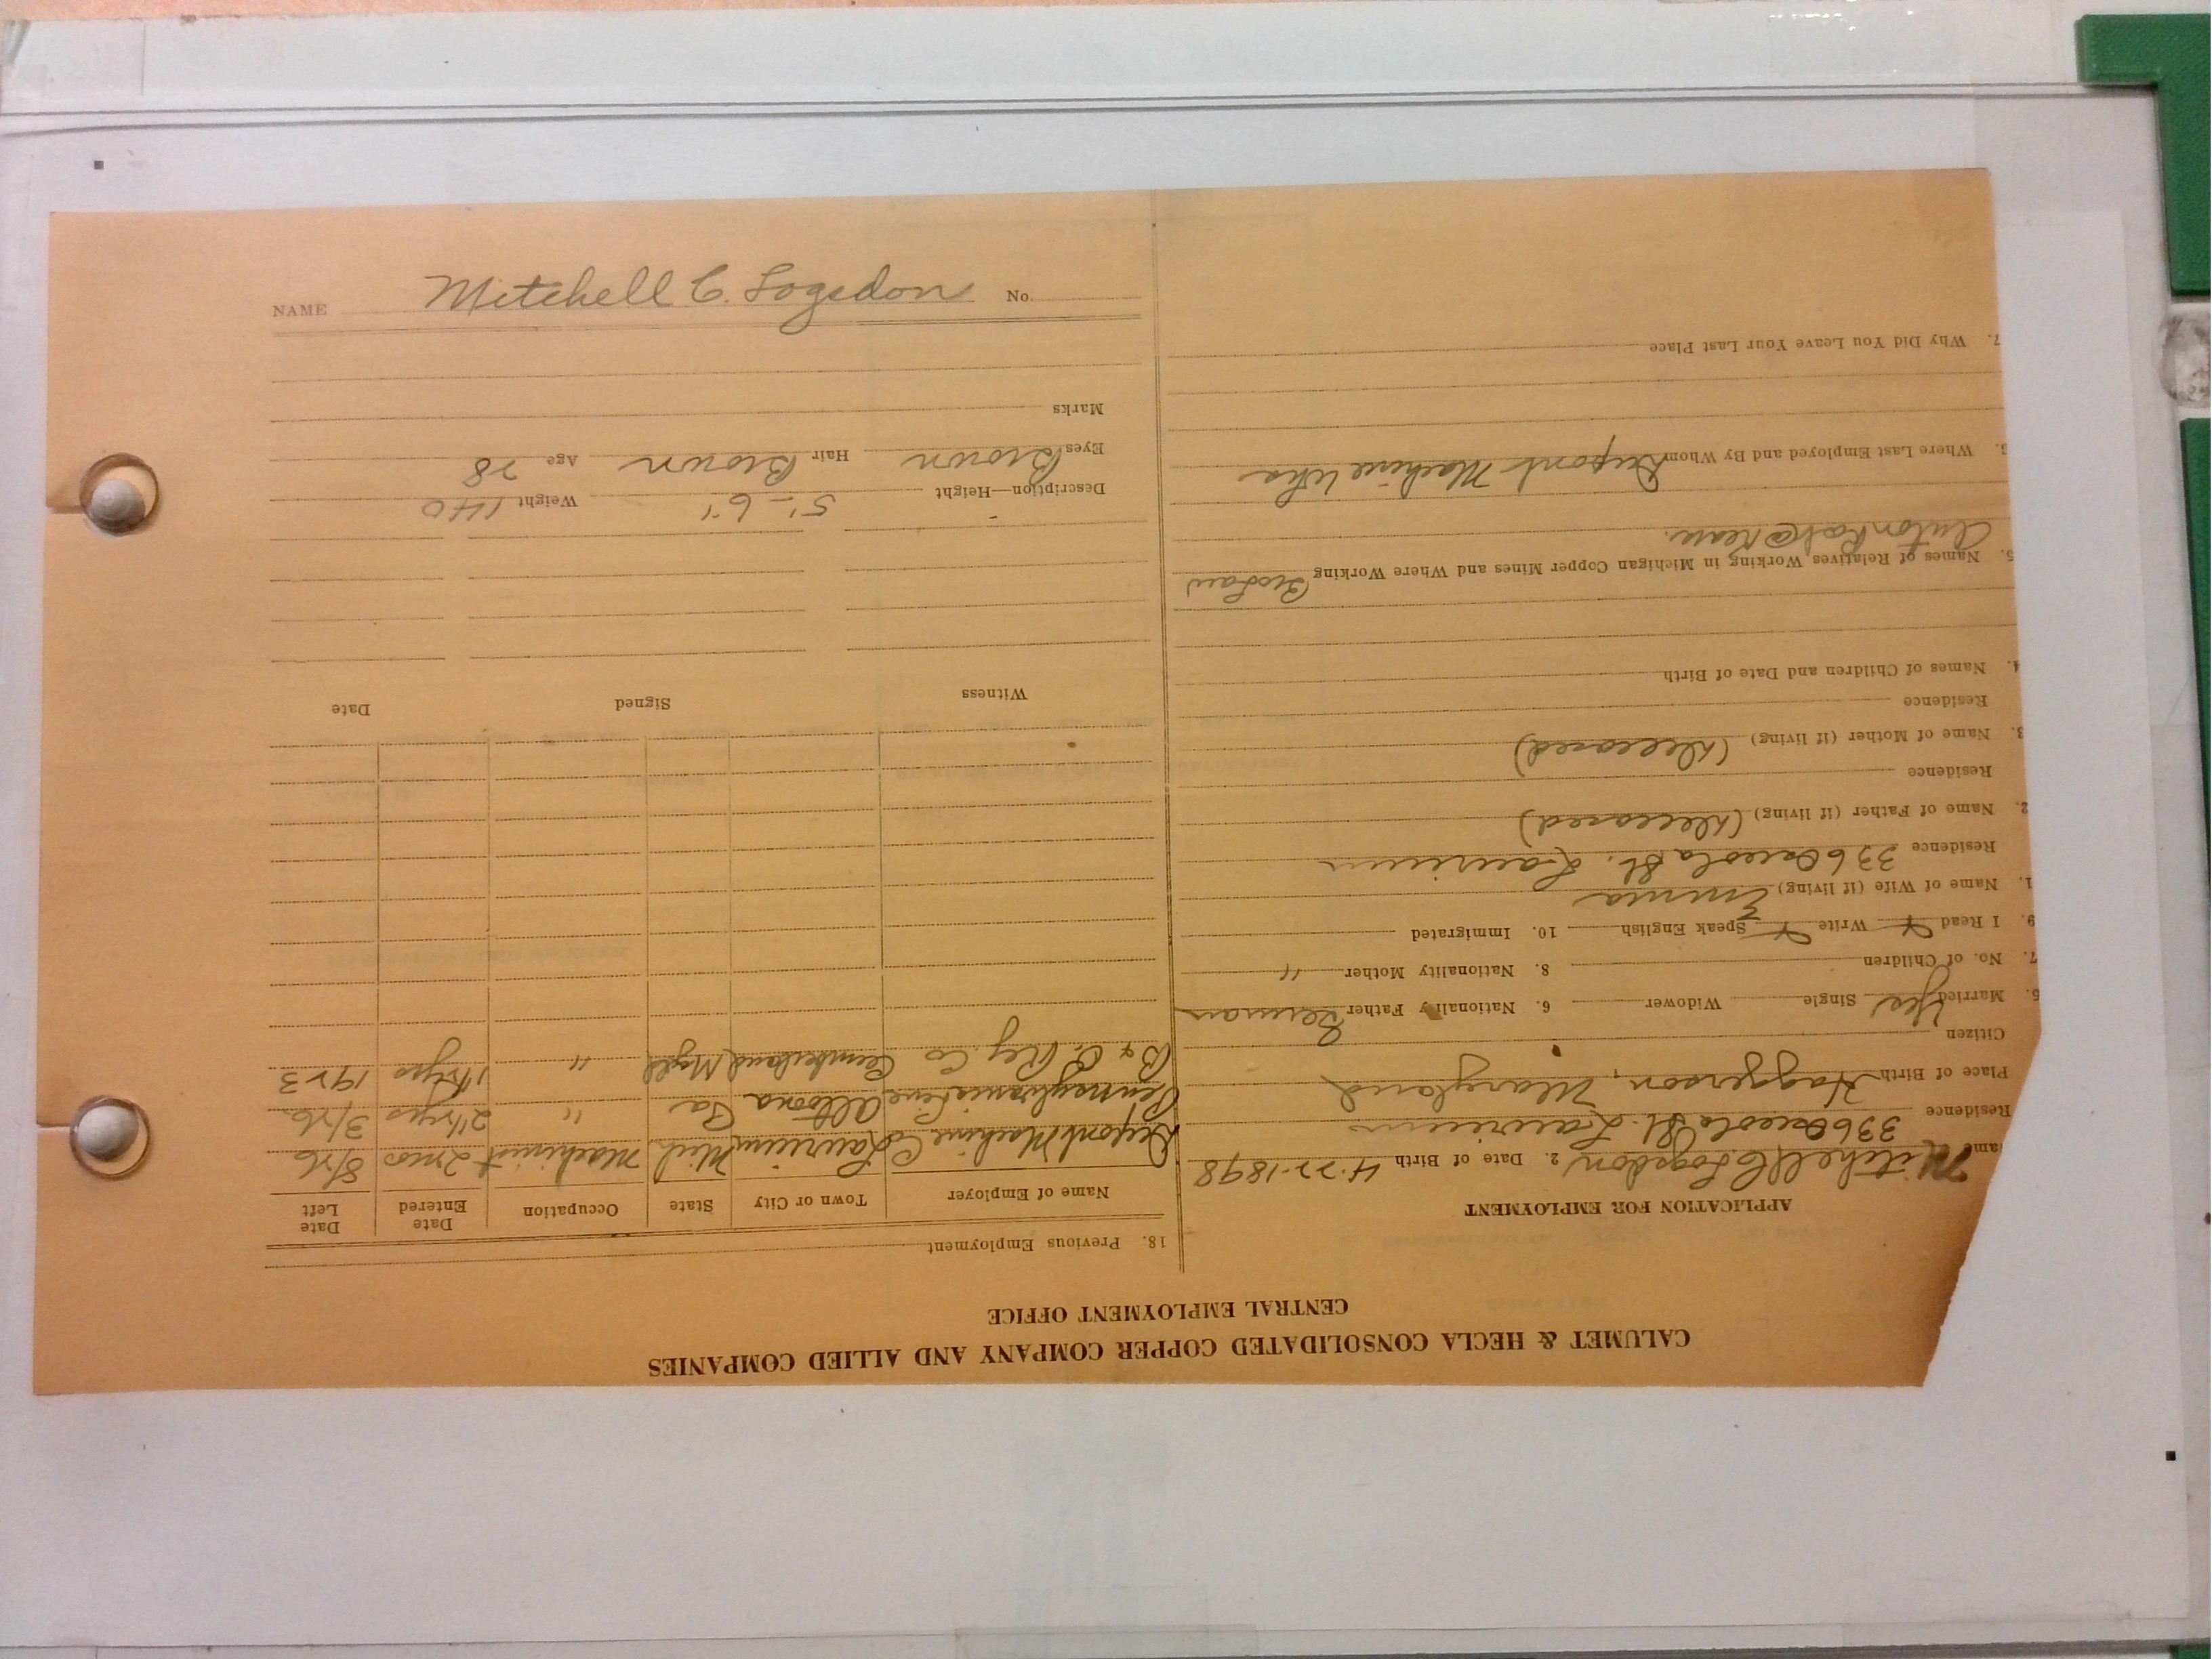 CALUMET & HECLA CONSOLIDATED COPPER COMPANY AND ALLIED COMPANIES
CENTRAL EMPLOYMENT OFFICE
APPLICATION FOR EMPLOYMENT
ame Mitchell C. Logsdon 2. Date of Birth 4-22-1898
Residence 336 Osceola St. Laurium
Place of Birth Haggerson, Maryland
Citizen
5. Married Yes Single Widower 6. Nationality Father German
7. No. of Children 8. Nationality Mother "
9. I Read Write Speak English 10. Immigrated
1. Name of Wife (if living) Emma
Residence 336 Osceola St. Laurium
2. Name of Father (if living) (Deceased)
Residence
3. Name of Mother (if living) (Deceased)
Residence
4. Names of Children and Date of Birth
5. Names of Relatives Working in Michigan Copper Mines and Where Working BroLaw
Anton
6. Where Last Employed and By Whom Dupont Machine Wks
7. Why Did You Leave Your Last Place
18. Previous Employment
Name of Employer Town or City State Occupation Date Entered Date Left
Dupont Machine Co Laurium Mich Machinist 2 mos 8/26
Pennsylvania Line Altoona Pa " 2½ yrs 3/26
B & O. Rly. Co Cumberland Maryld " 1½ yrs 1923
Witness Signed Date
Description—Height 5'-6" Weight 140
Eyes Brown Hair Brown Age 28
Marks
NAME Mitchell C. Logsdon No.